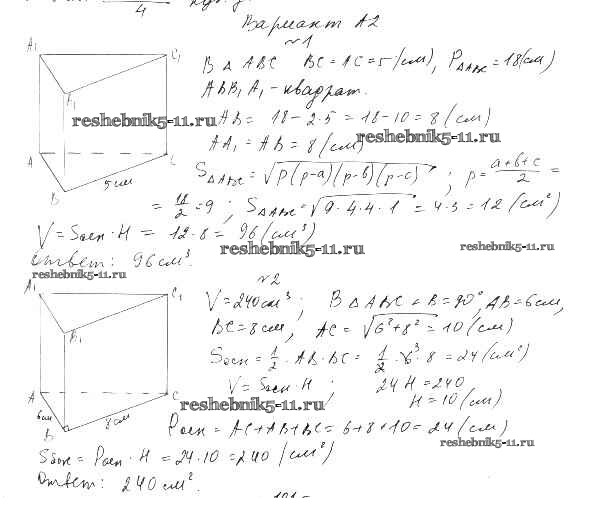 4
Вариант А2
№1
A₁ C₁ В △ ABC BC = AC = 5 (см), P△ABC = 18 (см)
B₁ ABB₁A₁ - квадрат.
reshebnik5-11.ru AB = 18 - 2·5 = 18 - 10 = 8 (см)
reshebnik5-11.ru
AA₁ = AB = 8 (см)
A C S△ABC = √p(p-a)(p-b)(p-c) ; p = a+b+c/2 =
B 5 см
= 18/2 = 9 ; S△ABC = √9·4·4·1 = 4·3 = 12 (см²)
V = Sосн · H = 12·8 = 96 (см³)
reshebnik5-11.ru reshebnik5-11.ru
Ответ: 96 см³.
reshebnik5-11.ru
№2
A₁ C₁ V = 240 см³ ; В △ ABC ∠B = 90°, AB = 6 см,
B₁ BC = 8 см, AC = √6²+8² = 10 (см)
Sосн = 1/2 · AB · BC = 1/2 · 6³ · 8 = 24 (см²)
A C V = Sосн · H ; 24 H = 240
H = 10 (см)
reshebnik5-11.ru
6 см B 8 см
Pосн = AC + AB + BC = 6 + 8 + 10 = 24 (см)
reshebnik5-11.ru
Sбок = Pосн · H = 24·10 = 240 (см²)
Ответ: 240 см².